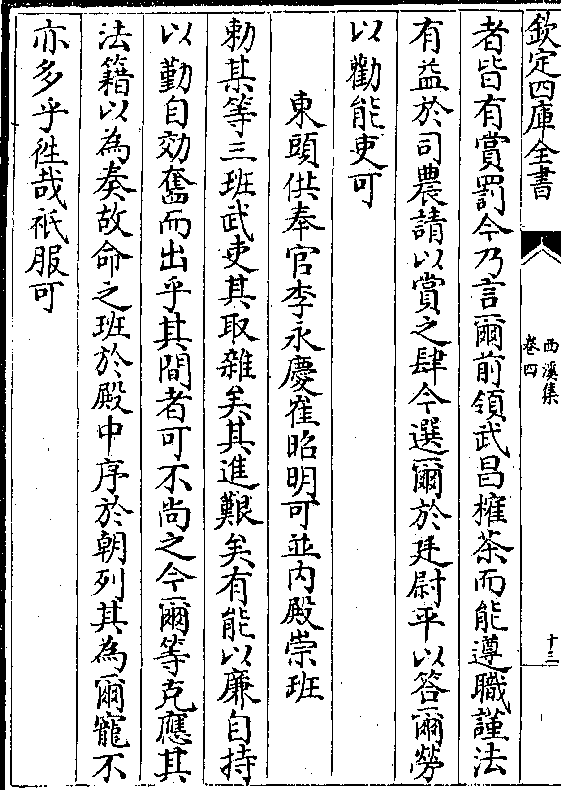 欽定四庫全書
西溪集
卷四
十三
者皆有賞罰今乃言爾前領武昌榷茶而能遵職謹法
有益於司農請以賞之肆今選爾於廷尉平以答爾勞
以勸能吏可
東頭供奉官李永慶崔昭明可並內殿崇班
勅某等三班武吏其取雜矣其進艱矣有能以廉自持
以勤自効奮而出乎其間者可不尚之今爾等克應其
法籍以為奏故命之班於殿中序於朝列其為爾寵不
亦多乎徃哉祇服可